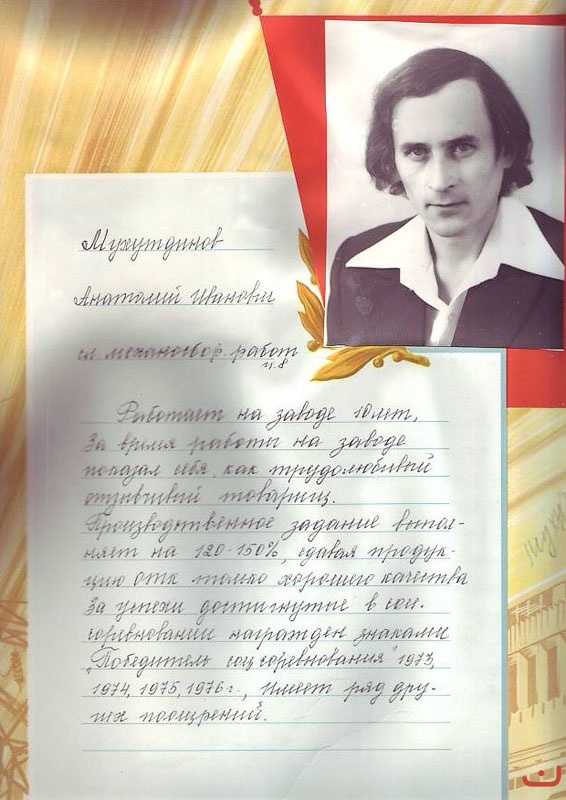 Мухутдинов
Анатолий Иванович
сл механосбор работ
ц.8
Работает на заводе 10 лет,
За время работы на заводе
показал себя, как трудолюбивый
отзывчивый товарищ.
Производственное задание выпол-
няет на 120-150%, сдавая продук-
цию ОТК только хорошего качества
За успехи достигнутые в соц.
соревновании награжден знаками
„Победитель соц соревнования" 1973,
1974, 1975, 1976 г., имеет ряд дру-
гих поощрений.